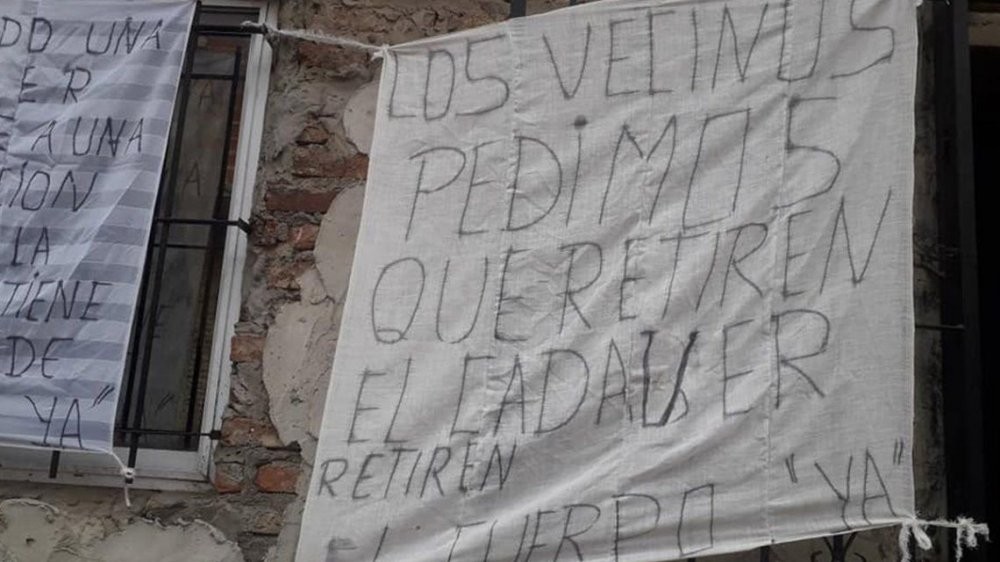 DO UNA
ER
E A UNA
CION
LA
TIENE
DE
YA"
LOS VECINOS
PEDIMOS
QUE RETIREN
EL CADAVER
RETIREN
EL CUERPO "YA"